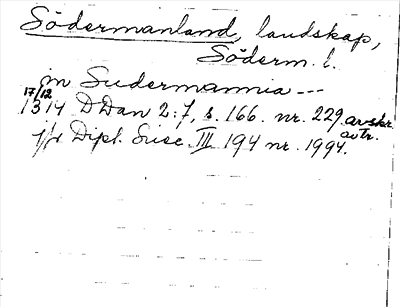 Södermanland, landskap,
Söderm. l.
in Sudermannia ---
17/12
1314 DDan 2:7, s. 166. nr. 229. avskr.
avtr.
jfr Dipl. Suec. III 194 nr. 1994.